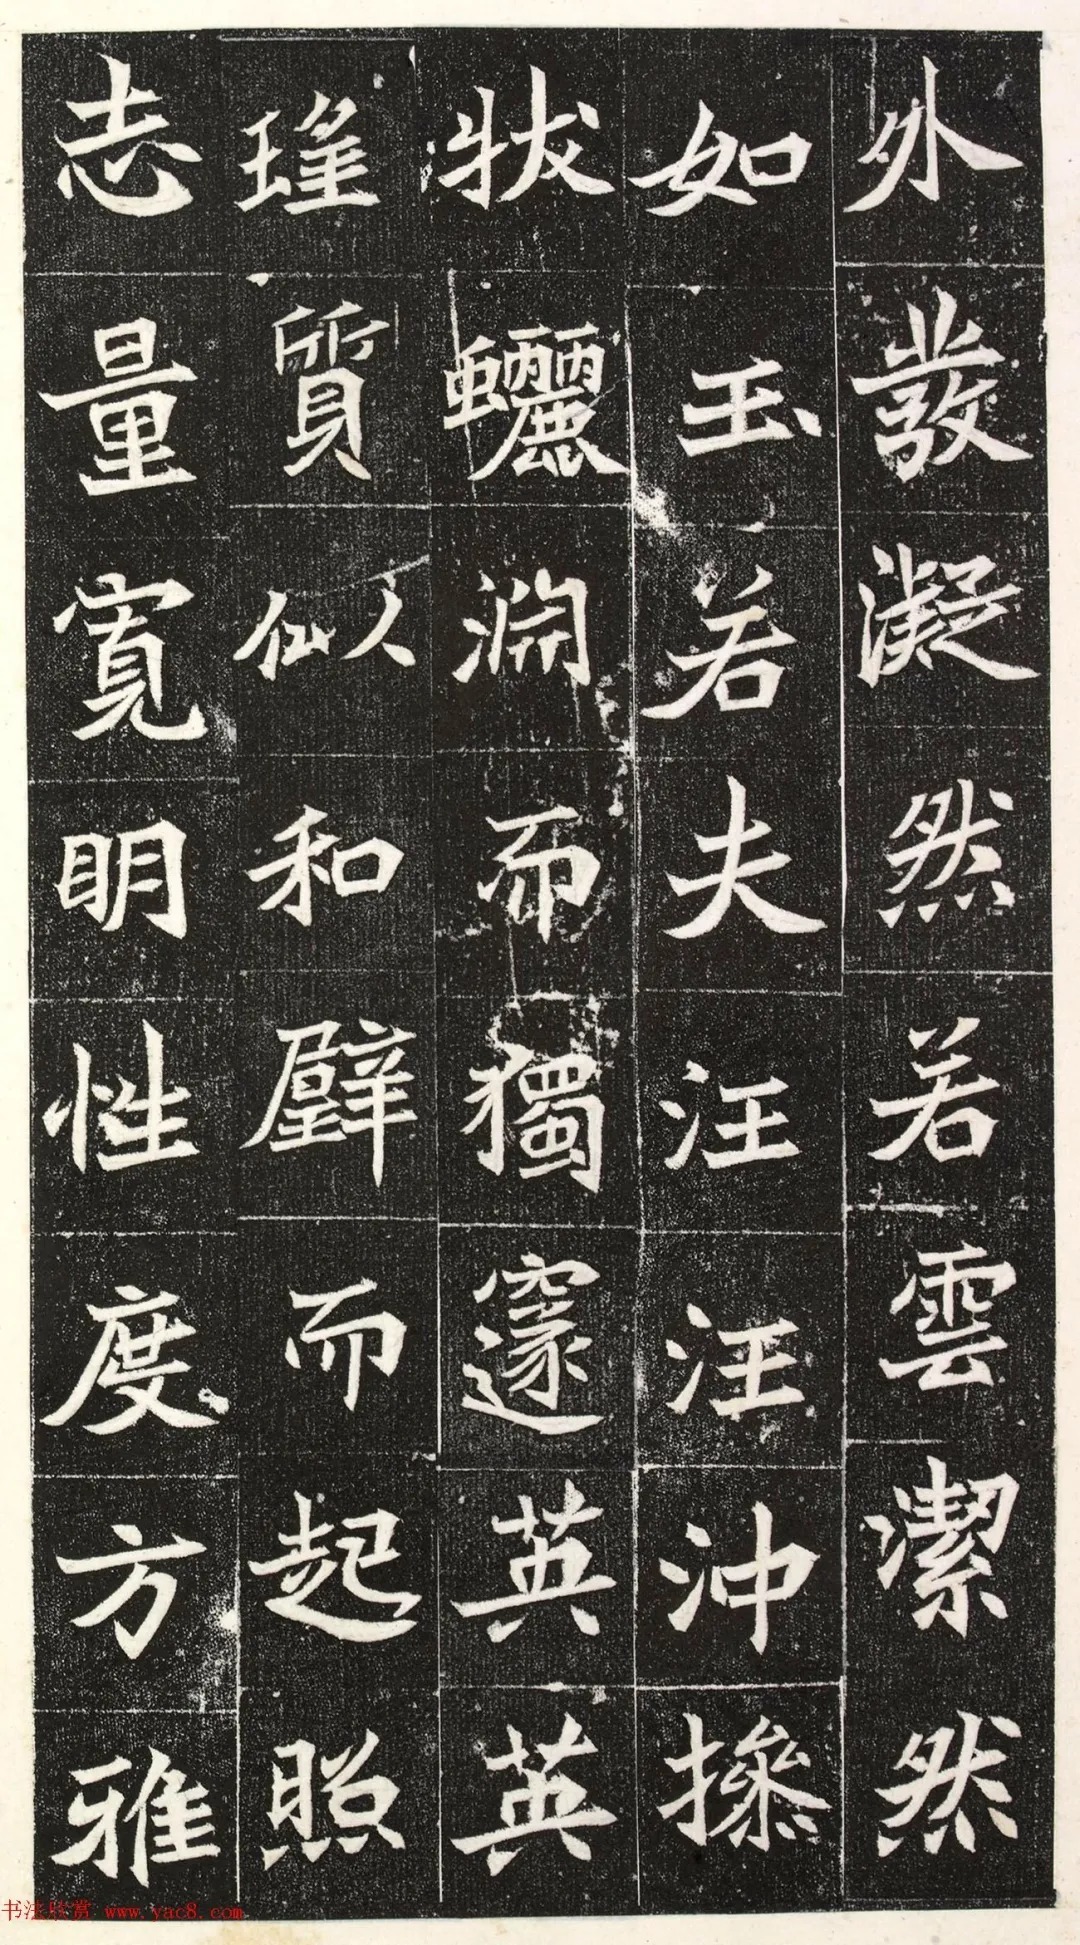 外發凝然若雲潔然
如玉若夫汪汪沖操
狀驪渊而獨邃英英
瑾質似和璧而起照
志量寬明性度方雅
书法欣赏 www.yac8.com